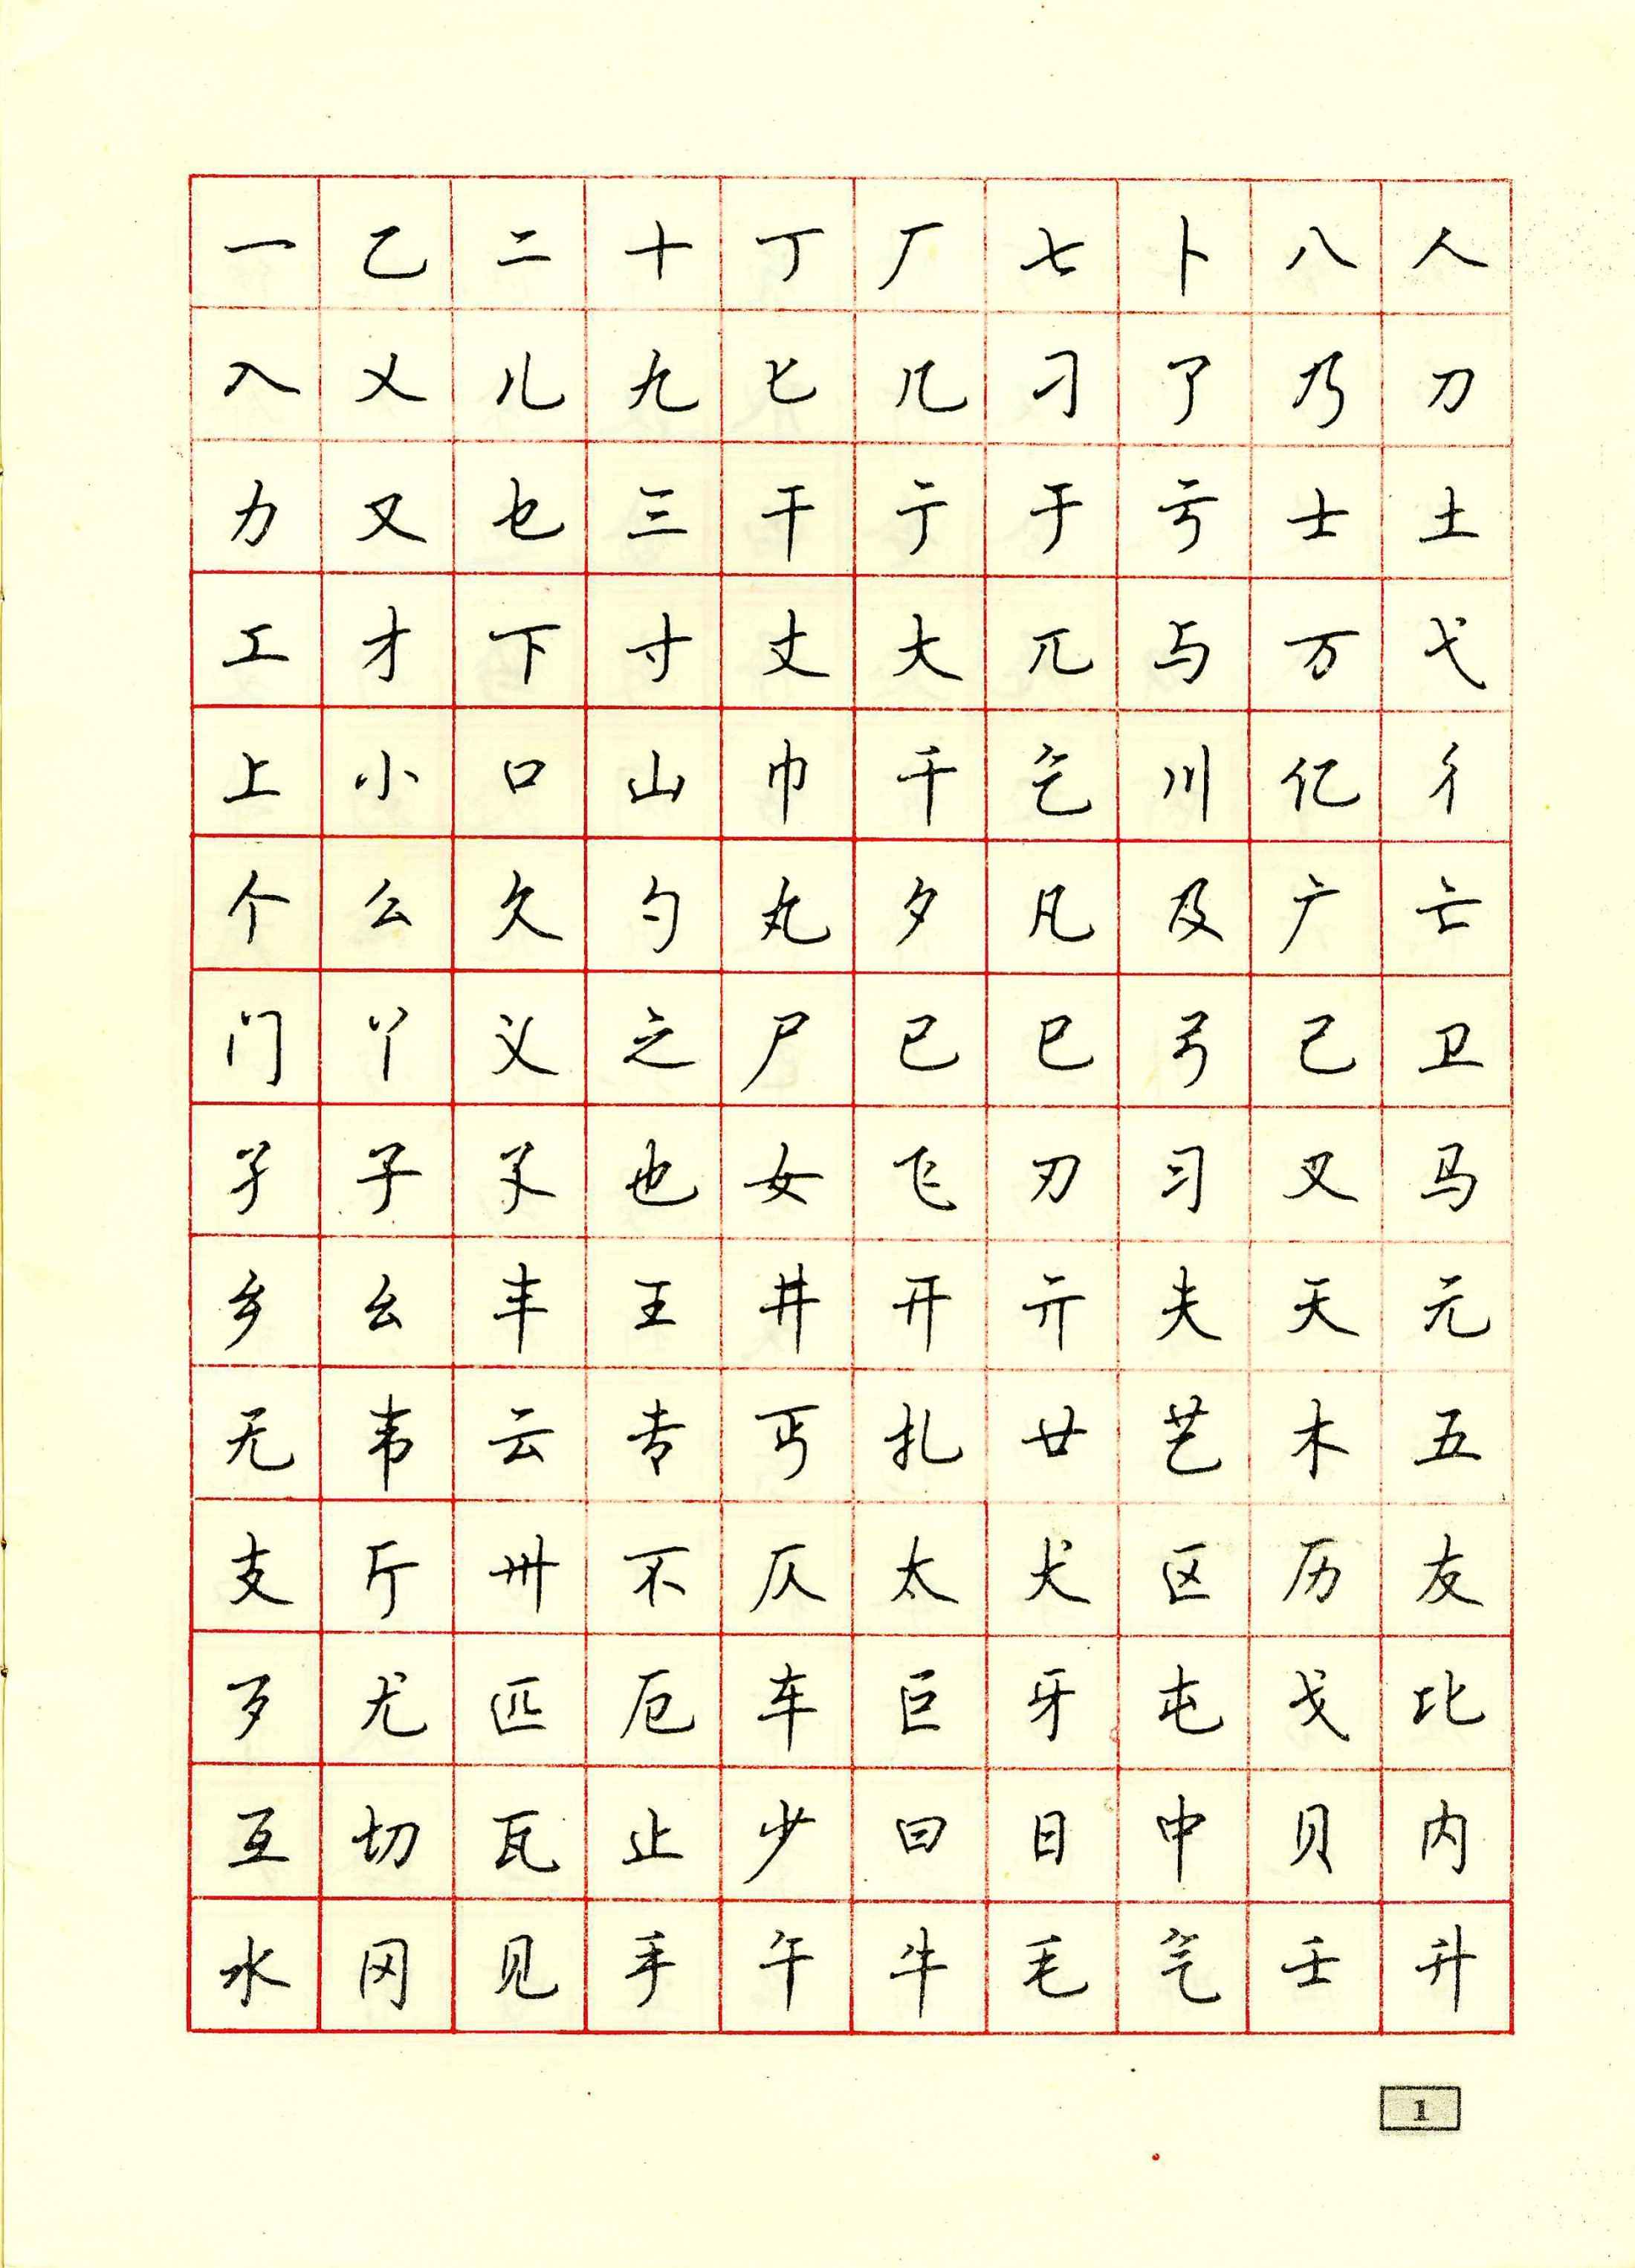 一乙二十丁厂七卜八人
入乂儿九匕几刁了乃刀
力又乜三干亍于亏士土
工才下寸丈大兀与万弋
上小口山巾千乞川亿彳
个么久勺丸夕凡及广亡
门丫义之尸已巳弓己卫
孑子孓也女飞刃习叉马
乡幺丰王井开亓夫天元
无韦云专丐扎廿艺木五
支厅卅不仄太犬区历友
歹尤匹厄车巨牙屯戈比
互切瓦止少曰日中贝内
水冈见手午牛毛气壬升
1